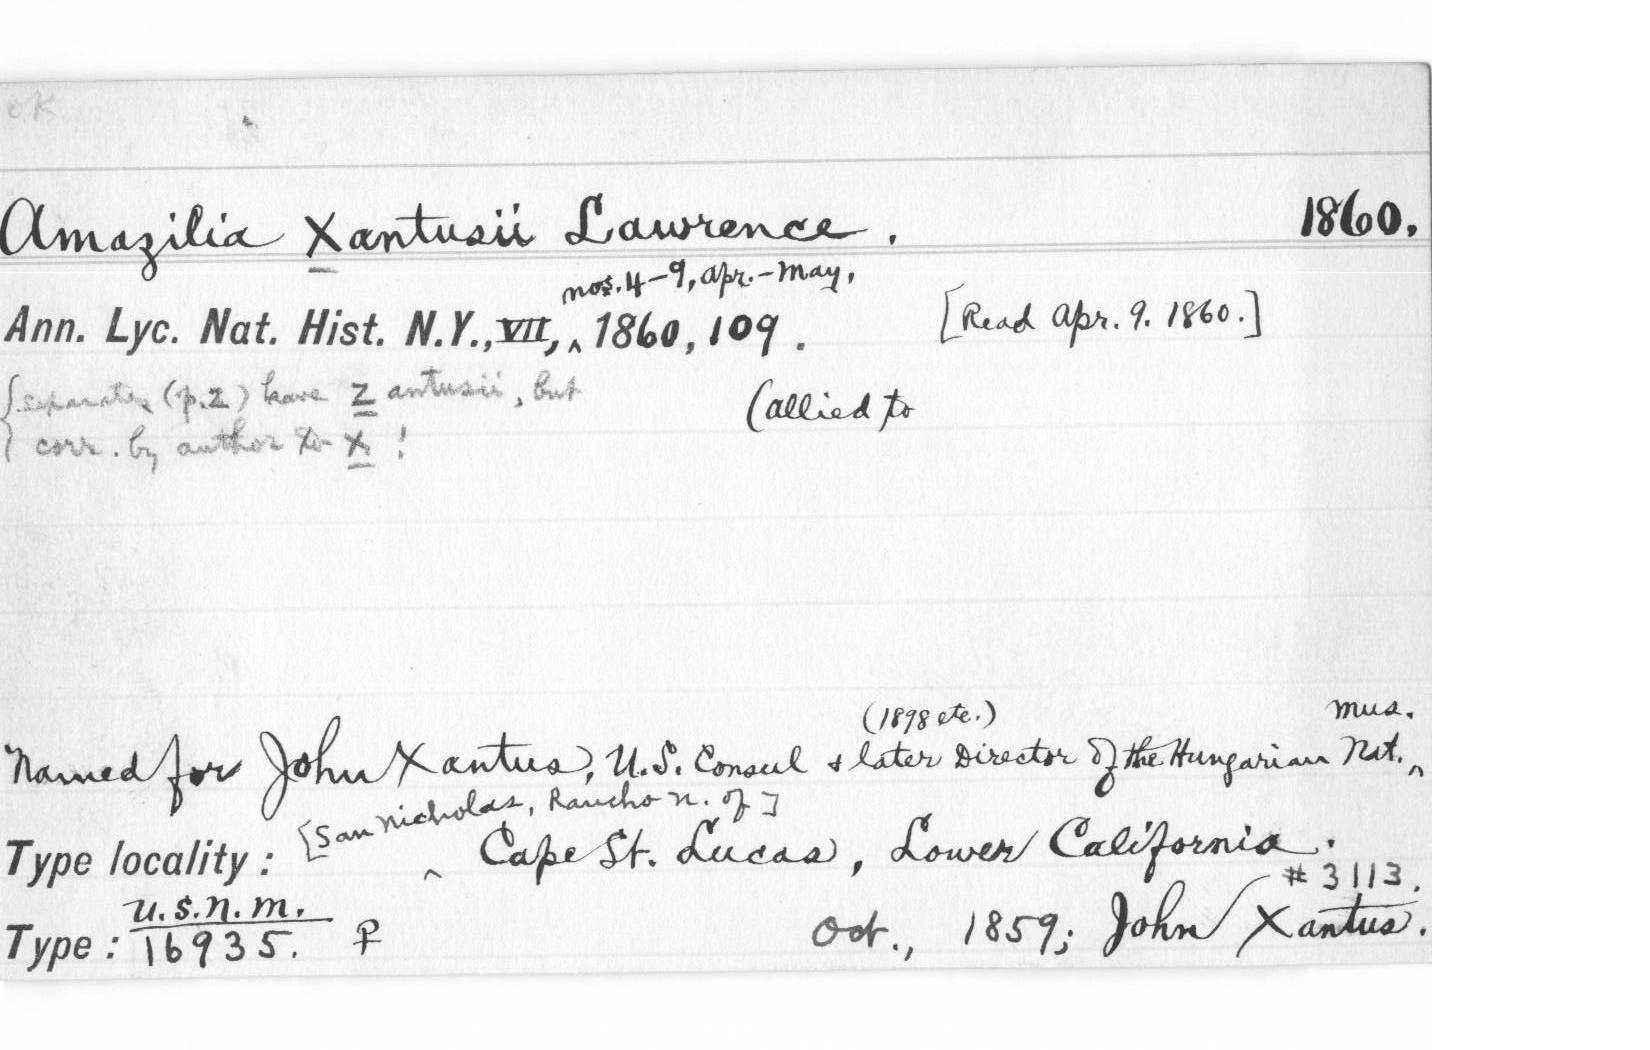 OK
Amazilia Xantusii Lawrence. 1860.
nos. 4-9, Apr.-May,
Ann. Lyc. Nat. Hist. N.Y., VII, ^ 1860, 109. [Read Apr. 9. 1860.]
{separates (p.2) have Zantusii, but
corr. by author to X!
(allied to
(1898 etc.) mus.
Named for John Xantus, U.S. Consul & later Director of the Hungarian Nat. ^
[San Nicholas, Rancho n. of]
Type locality: ^ Cape St. Lucas, Lower California.
#3113.
Type: U.S.N.M. 16935. ♀ Oct., 1859; John Xantus.